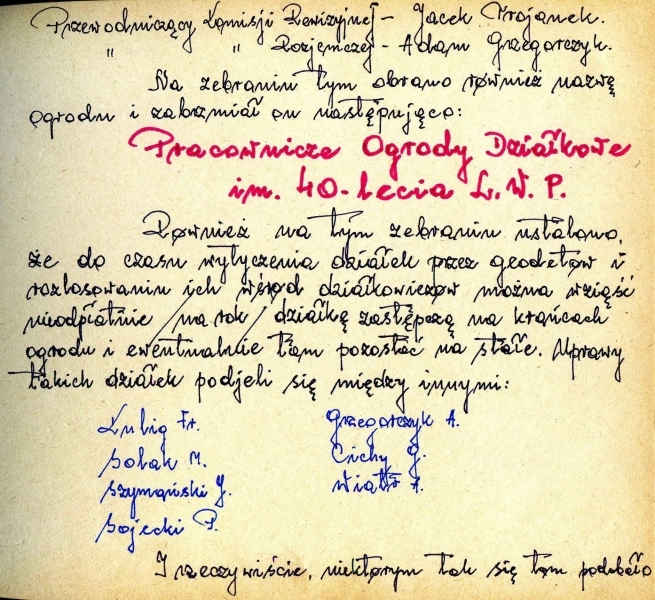 Przewodniczący Komisji Rewizyjnej - Jacek Trojanek.
" " Rozjemczej - Adam Grzegorczyk.
Na zebraniu tym obrano również nazwę
ogrodu i zabrzmiał on następująco:
Pracownicze Ogrody Działkowe
im. 40-lecia L.W.P.
Również na tym zebraniu ustalono,
że do czasu wytyczenia działek przez geodetów i
rozlosowaniu ich wśród działkowiczów można wziąść
nieodpłatnie /na rok/ działkę zastępczą na krańcach
ogrodu i ewentualnie tam pozostać na stałe. Uprawy
takich działek podjeli się między innymi:
Kubig Fr. Grzegorczyk A.
Sobak M. Cichy G.
Szymański J. Wiatr A.
Sojecki P.
I rzeczywiście, niektórym tak się tam podobało